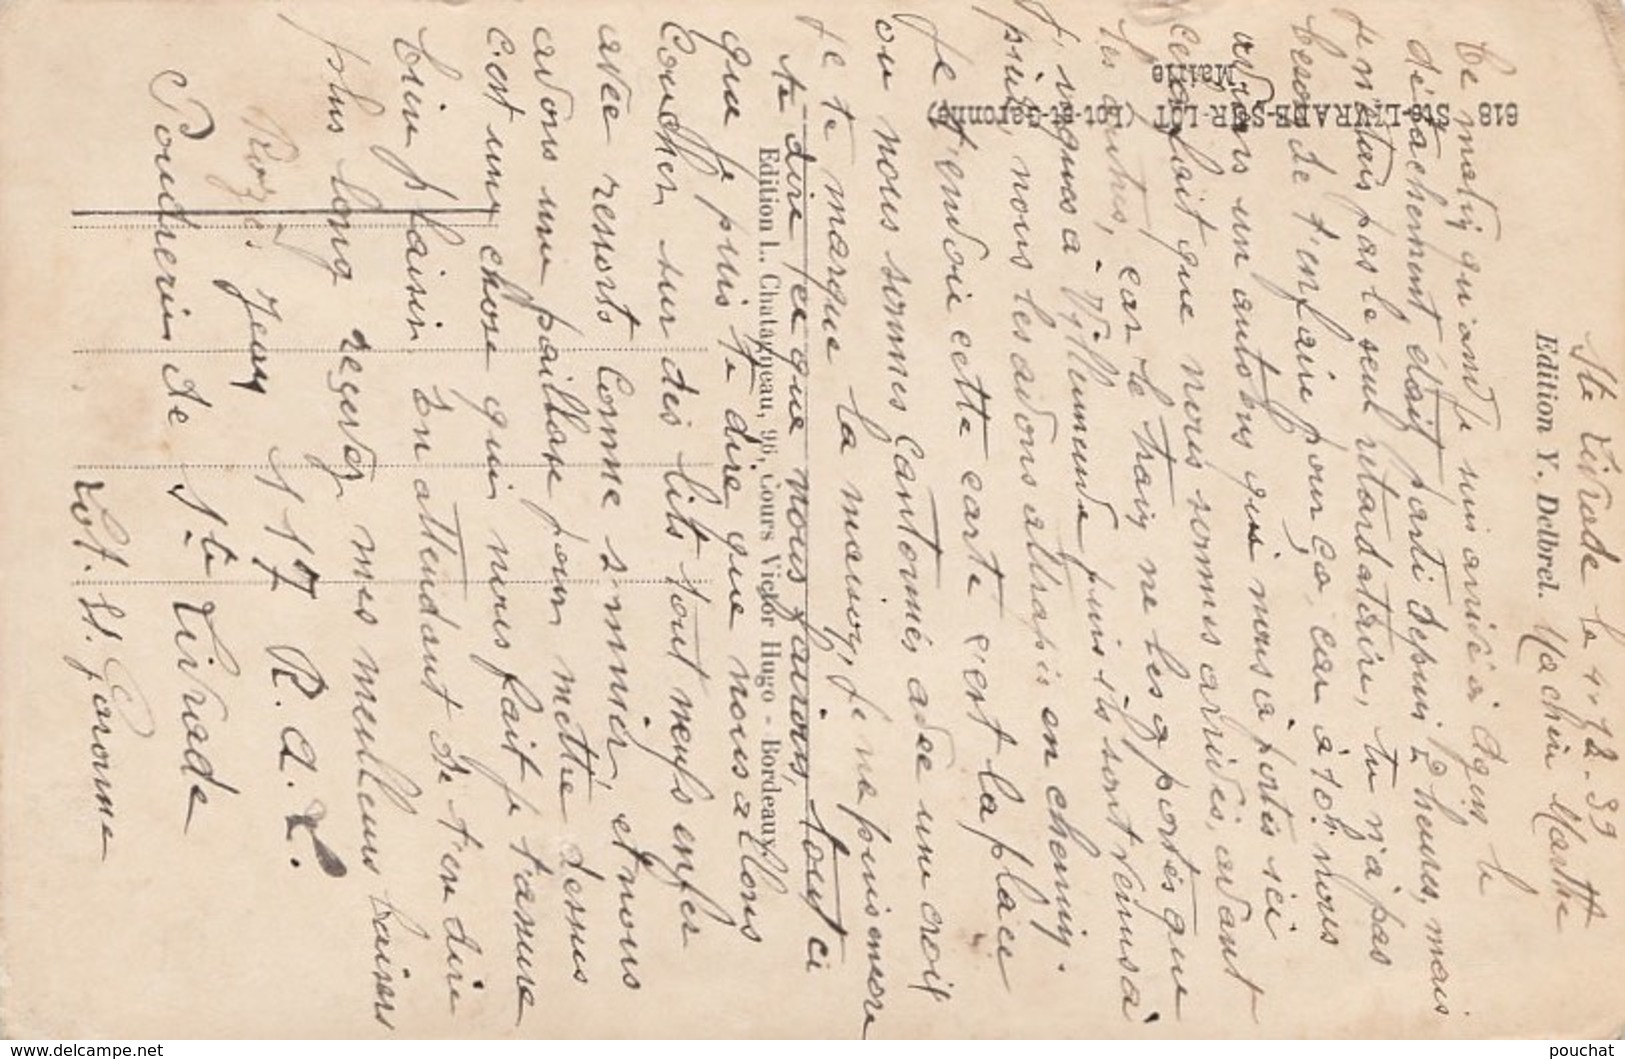 Ste Livrade le 4.12.39
Ma chère Marthe
Ce matin quand je suis arrivé à Agen le
détachement était parti depuis 2 heures, mais
je n'étais pas le seul retardataire, tu n'a pas
besoin de t'en faire pour ça, car à 10h nous
avons un autobus qui nous à portés ici
cela fait que nous sommes arrivés, avant
les autres, car le train ne les a portés que
jusqu'a Villeneuve puis ils sont venus à
pieds, nous les avons attrapés en chemin.
Je t'envoie cette carte c'est la place
ou nous sommes cantonnés avec une croix
je te marque la maison, je ne puis encore
te dire ce que nous farons, tout ci
que je puis te dire que nous allons
coucher sur des lits tout neufs en fer
avec ressorts comme sommier, et nous
avons une paillase pour mettre dessus
c'est une chose qui nous fait je t'assure
bien plaisir. En attendant de t'en dire
plus long reçevez mes meilleurs baisers
Jean
117 R.A.L.
Poudrerie de Ste Livrade
Lot. et. Garonne
618 Ste-LIVRADE-SUR-LOT (Lot-et-Garonne)
Mairie
Edition Y. Delbrel.
Edition L. Chatagneau, 96, Cours Victor Hugo - Bordeaux
www.delcampe.net
pouchat